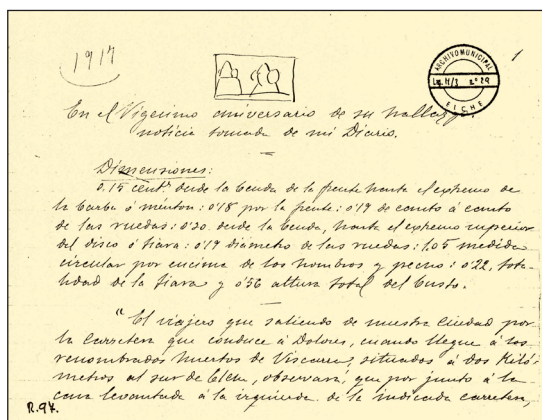 1917
1
ARCHIVO MUNICIPAL
Lg. H/3 nº 29
ELCHE
En el Vigesimo aniversario de su hallazgo,
noticia tomada de mi Diario.
Dimensiones:
0,15 centº desde la benda de la frente hasta el extremo de
la barba ó menton: 0'18 por la frente: 0'19 de canto á canto
de las ruedas: 0'20 desde la benda, hasta el extremo superior
del disco ó tiara: 0'19 diametro de las ruedas: 1,05 medida
circular por encima de los hombros y pecho: 0'22, tota-
lidad de la tiara y 0'56 altura total del busto.
"El viajero que saliendo de nuestra Ciudad por
la Carretera que conduce á Dolores, cuando llegue á los
renombrados Huertos de Viscarra, situados á dos Kiló-
metros al sur de Elche, observará, que por junto á la
casa levantada á la izquierda de la indicada carretera,
R.94.